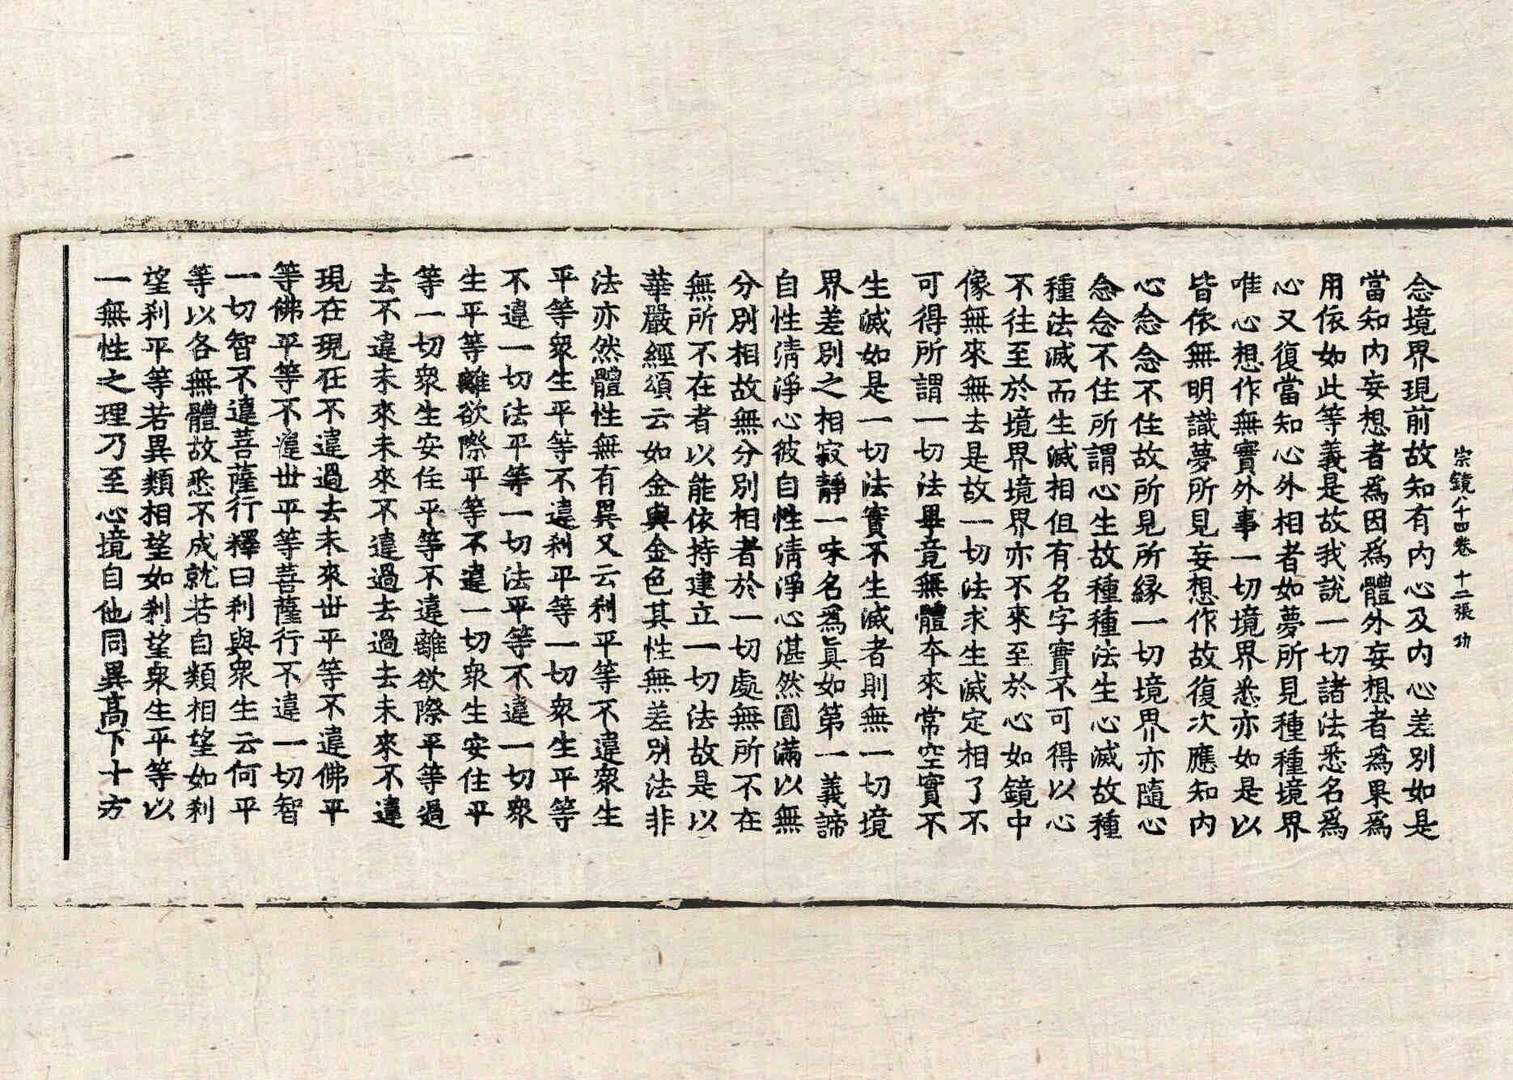 宗鏡八十四卷 十二張 功
念境界現前故知有内心及内心差別如是
當知内妄想者爲因爲體外妄想者爲果爲
用依如此等義是故我說一切諸法悉名爲
心又復當知心外相者如夢所見種種境界
唯心想作無實外事一切境界悉亦如是以
皆依無明識夢所見妄想作故復次應知内
心念念不住故所見所緣一切境界亦隨心
念念不住所謂心生故種種法生心滅故種
種法滅而生滅相但有名字實不可得以心
不往至於境界境界亦不來至於心如鏡中
像無來無去是故一切法求生滅定相了不
可得所謂一切法畢竟無體本來常空實不
生滅如是一切法實不生滅者則無一切境
界差別之相寂靜一味名爲眞如第一義諦
自性清淨心彼自性清淨心湛然圓滿以無
分別相故無分別相者於一切處無所不在
無所不在者以能依持建立一切法故是以
華嚴經頌云如金與金色其性無差別法非
法亦然體性無有異又云刹平等不違衆生
平等衆生平等不違刹平等一切衆生平等
不違一切法平等一切法平等不違一切衆
生平等離欲際平等不違一切衆生安住平
等一切衆生安住平等不違離欲際平等過
去不違未來未來不違過去過去未來不違
現在現在不違過去未來世平等不違佛平
等佛平等不違世平等菩薩行不違一切智
一切智不違菩薩行釋曰刹與衆生云何平
等以各無體故悉不成就若自類相望如刹
望刹平等若異類相望如刹望衆生平等以
一無性之理乃至心境自他同異高下十方